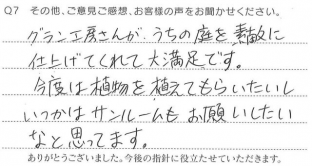 Q7 その他、ご意見ご感想、お客様の声をお聞かせください。
グラン工房さんが、うちの庭を素敵に
仕上げてくれて大満足です。
今度は植物を植えてもらいたいし
いつかはサンルームもお願いしたい
なと思ってます。
ありがとうございました。今後の指針に役立たせていただきます。